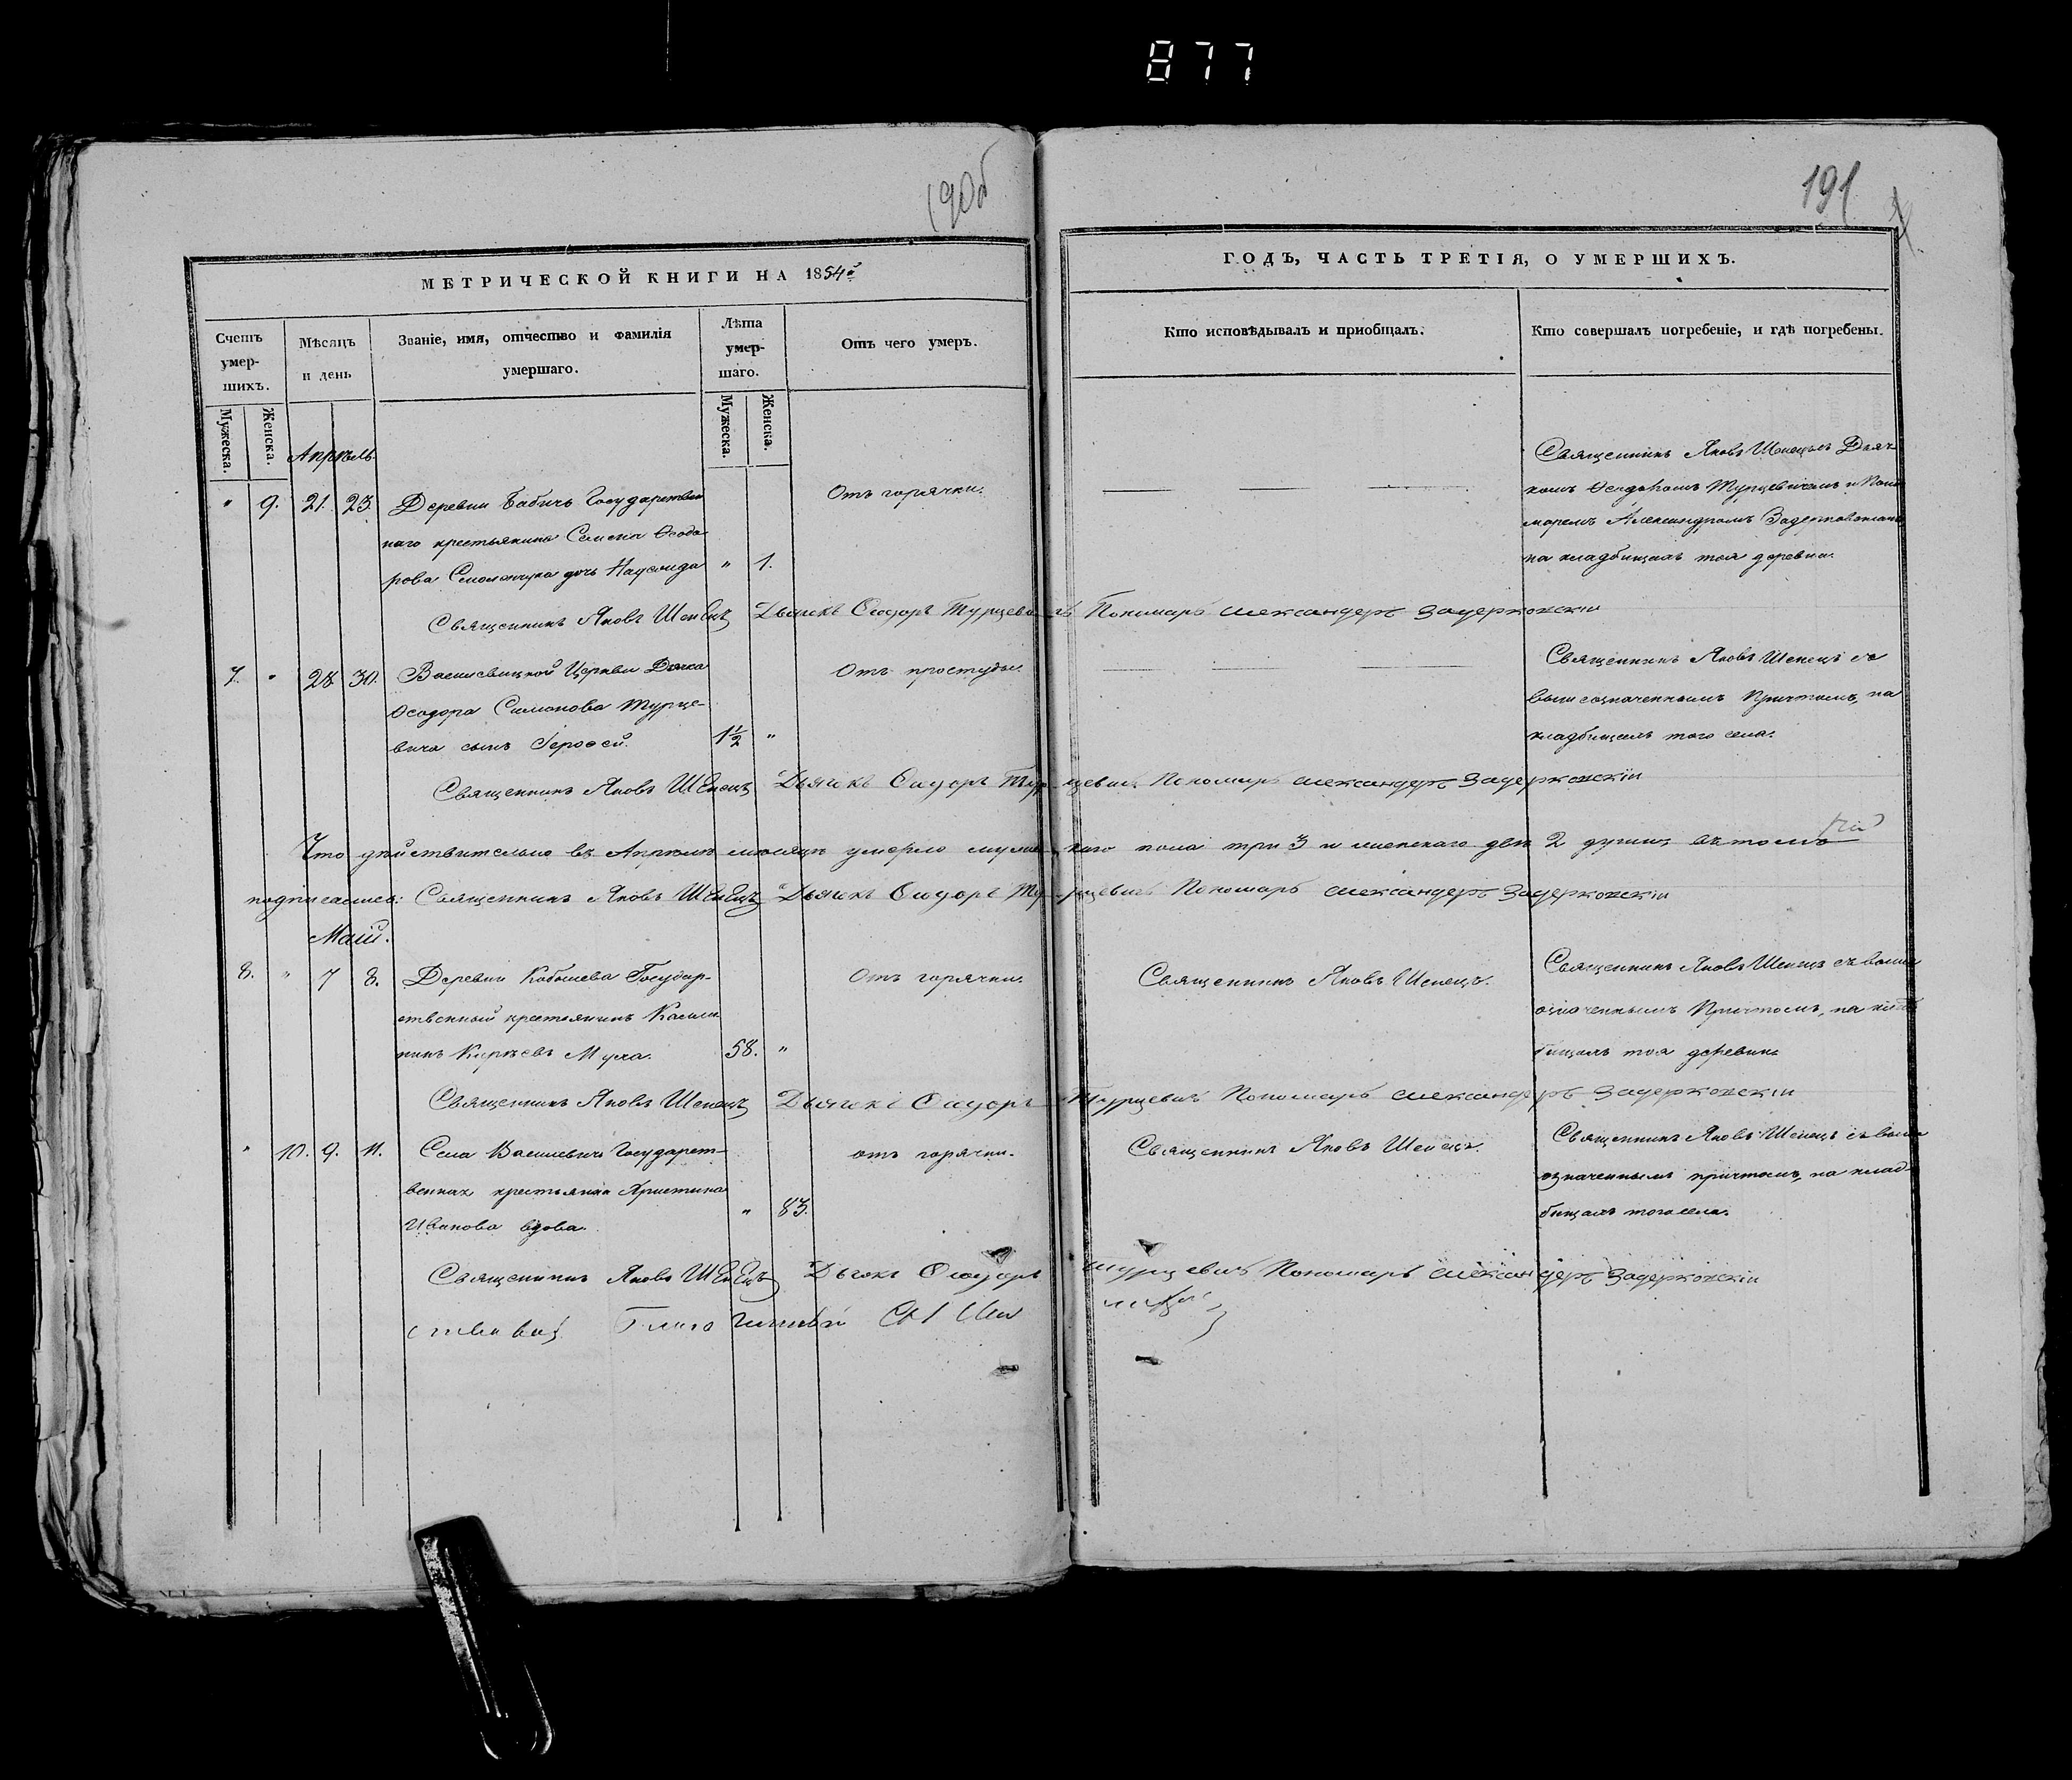 877
190б
191
МЕТРИЧЕСКОЙ КНИГИ НА 1854й
ГОДЪ, ЧАСТЬ ТРЕТІЯ, О УМЕРШИХЪ.
Счетъ умер-шихъ.
Мѣсяцъ и день
Званіе, имя, отчество и фамилія умершаго.
Лѣта умер-шаго.
Отъ чего умеръ.
Кто исповѣдывалъ и пріобщалъ.
Кто совершалъ погребеніе, и гдѣ погребены.
Мужеска.
Женска.
Мужеска.
Женска.
Апрѣль
" 9. 21. 23. Деревни Бабичъ Государствен
наго крестьянина Семена Ѳеодо
рова дочь " 1.
Отъ горячки.
Священникъ Яковъ Шепецъ Дьяч
комъ Турцевичемъ и Поно
маремъ Александромъ Задерковскимъ
на кладбищахъ тоя деревни.
Священникъ Яковъ Шепецъ Дьячкъ Ѳеодоръ Турцевичъ Пономарь Александеръ Задерковскій
7. " 28 30. Василевицкой Церкви Дьячка
Ѳеодора Симонова Турце-
вича сынъ Іероѳей. 1½ "
Отъ простуды.
Священникъ Яковъ Шепецъ съ
вышеозначеннымъ Причтомъ, на
кладбищахъ того села.
Священникъ Яковъ Шепецъ Дьячкъ Ѳеодоръ Турцевичъ Пономарь Александеръ Задерковскій
Что дѣйствительно въ Апрѣлѣ мѣсяцѣ умерло мужескаго пола три 3 и женскаго двѣ 2 души, въ томъ
подписались: Священникъ Яковъ Шепецъ Дьячкъ Ѳеодоръ Турцевичъ Пономарь Александеръ Задерковскій
Маій.
8. " 7 8. Деревни Государ-
ственный крестьянинъ
Муха. 58. "
Отъ горячки.
Священникъ Яковъ Шепецъ.
Священникъ Яковъ Шепецъ съ выше
означеннымъ Причтомъ, на клад
бищахъ тоя деревни
Священникъ Яковъ Шепецъ Дьячкъ Ѳеодоръ Турцевичъ Пономарь Александеръ Задерковскій
" 10. 9. 11. Села Василевичъ Государст-
венная крестьянка Христина
Иванова вдова. " 83.
отъ горячки.
Священникъ Яковъ Шепецъ.
Священникъ Яковъ Шепецъ съ выше
означеннымъ причтомъ, на клад
бищахъ того села.
Священникъ Яковъ Шепецъ Дьячкъ Ѳеодоръ Турцевичъ Пономарь Александеръ Задерковскій